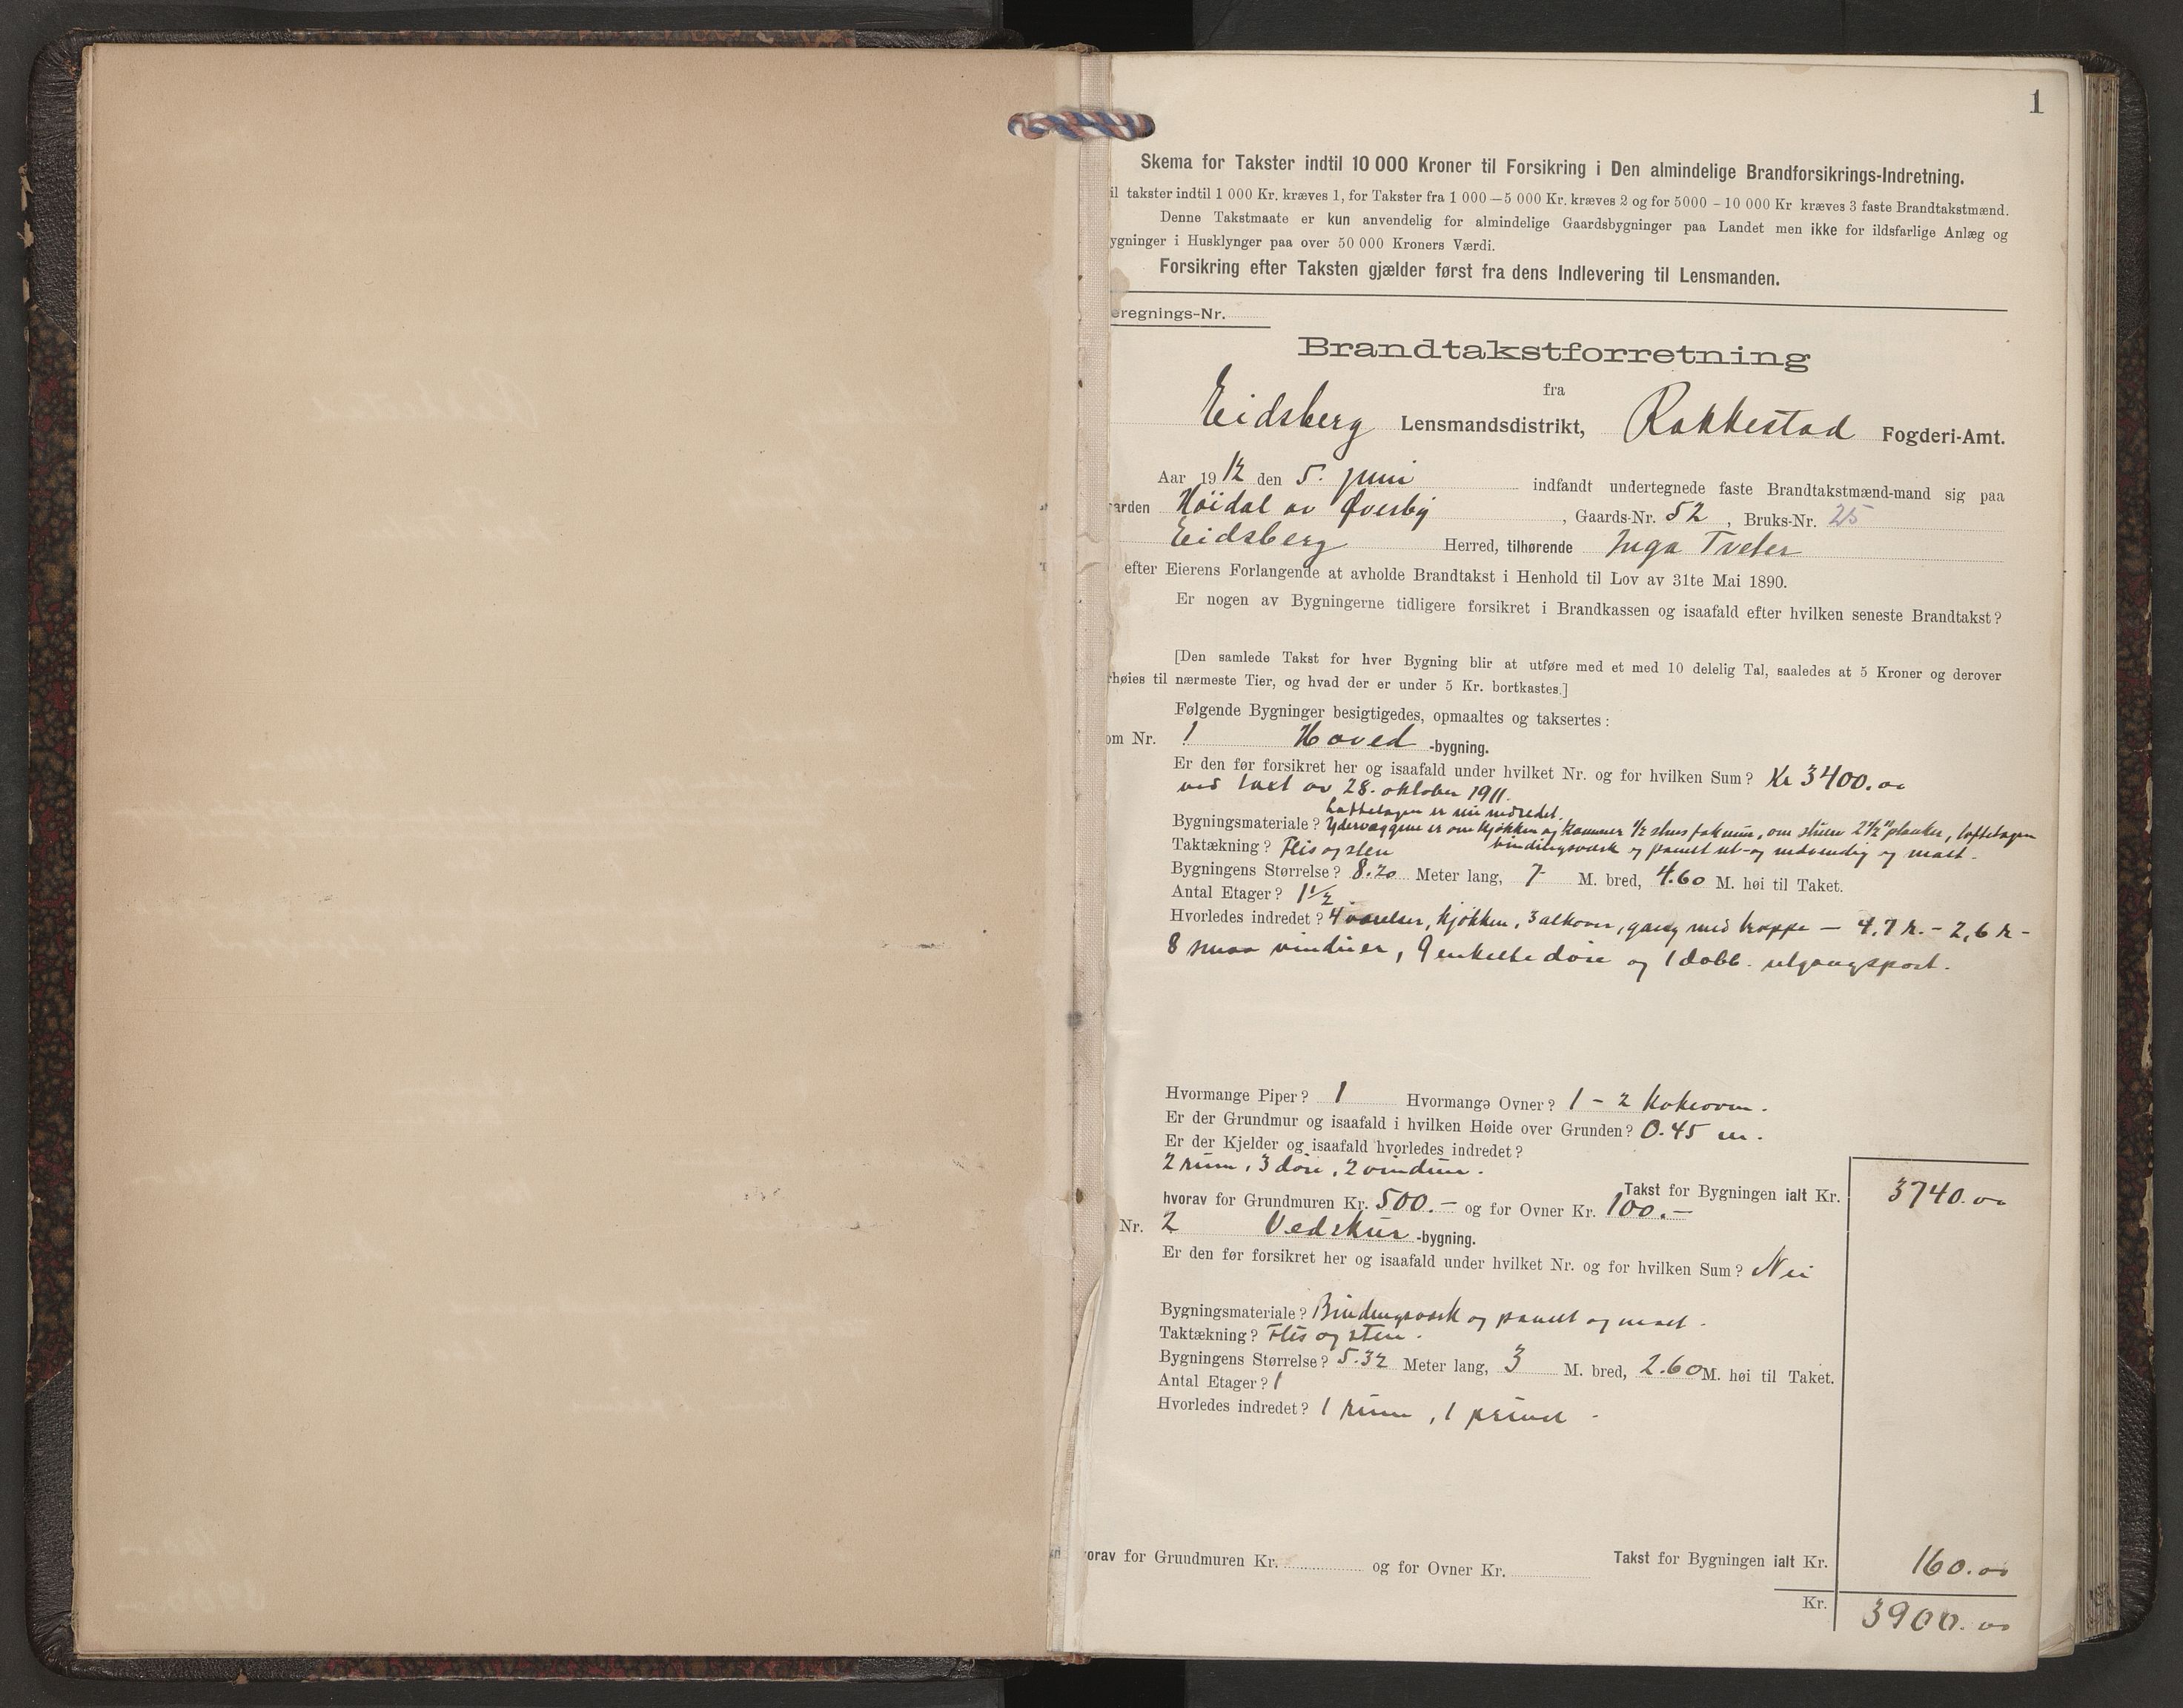 1
Skema for Takster indtil 10 000 Kroner til Forsikring i Den almindelige Brandforsikrings-Indretning.
il takster indtil 1 000 Kr. kræves 1, for Takster fra 1 000 — 5 000 Kr. kræves 2 og for 5000 - 10 000 Kr kræves 3 faste Brandtakstmænd.
Denne Takstmaate er kun anvendelig for almindelige Gaardsbygninger paa Landet men ikke for ildsfarlige Anlæg og
ygninger i Husklynger paa over 50 000 Kroners Værdi.
Forsikring efter Taksten gjælder først fra dens Indlevering til Lensmanden.
eregnings-Nr.
Brandtakstforretning
fra
Eidsberg Lensmandsdistrikt, Rakkestad Fogderi-Amt.
Aar 1912 den 5. juni indfandt undertegnede faste Brandtakstmænd-mand sig paa
arden Höidal av Øverby, Gaards-Nr. 52, Bruks-Nr. 25
Eidsberg Herred, tilhørende Inga Tveter
efter Eierens Forlangende at avholde Brandtakst i Henhold til Lov av 31te Mai 1890.
Er nogen av Bygningerne tidligere forsikret i Brandkassen og isaafald efter hvilken seneste Brandtakst?
[Den samlede Takst for hver Bygning blir at utføre med et med 10 delelig Tal, saaledes at 5 Kroner og derover
rhøies til nærmeste Tier, og hvad der er under 5 Kr. bortkastes.]
Følgende Bygninger besigtigedes, opmaaltes og taksertes:
om Nr. 1 Hoved -bygning.
Er den før forsikret her og isaafald under hvilket Nr. og for hvilken Sum? Kr 3400.00
ved taxt av 28. oktober 1911.
Loftetagen er nu indredet.
Bygningsmateriale? Ydervæggene er om kjøkken og kammer 1/2 stens , om stuen 2 1/2" planker, loftetagen
bindingsværk og panelt ut- og indvendig og malt.
Taktækning? Flis og sten
Bygningens Størrelse? 8.20 Meter lang, 7 M. bred, 4.60 M. høi til Taket.
Antal Etager? 1 1/2
Hvorledes indredet? 4 værelser, kjøkken, 3 alkover, gang med trappe — 4,7 r. - 2,6 r -
8 smaa vinduer, 9 enkelte døre og 1 dobb. utgangsport.
Hvormange Piper? 1 Hvormange Ovner? 1 - 2 Kokeovn.
Er der Grundmur og isaafald i hvilken Høide over Grunden? 0.45 m.
Er der Kjelder og isaafald hvorledes indredet?
2 rum, 3 döre, 2 vinduer.
Takst for Bygningen ialt Kr. 3740.00
hvorav for Grundmuren Kr. 500.— og for Ovner Kr. 100.—
Nr. 2 Vedskur -bygning.
Er den før forsikret her og isaafald under hvilket Nr. og for hvilken Sum? Nei
Bygningsmateriale? Bindingsværk og panelt og malt.
Taktækning? Flis og sten.
Bygningens Størrelse? 5.32 Meter lang, 3 M. bred, 2.60 M. høi til Taket.
Antal Etager? 1
Hvorledes indredet? 1 rum, 1 privet -
vorav for Grundmuren Kr. og for Ovner Kr. Takst for Bygningen ialt Kr. 160.00
Kr. 3900.00